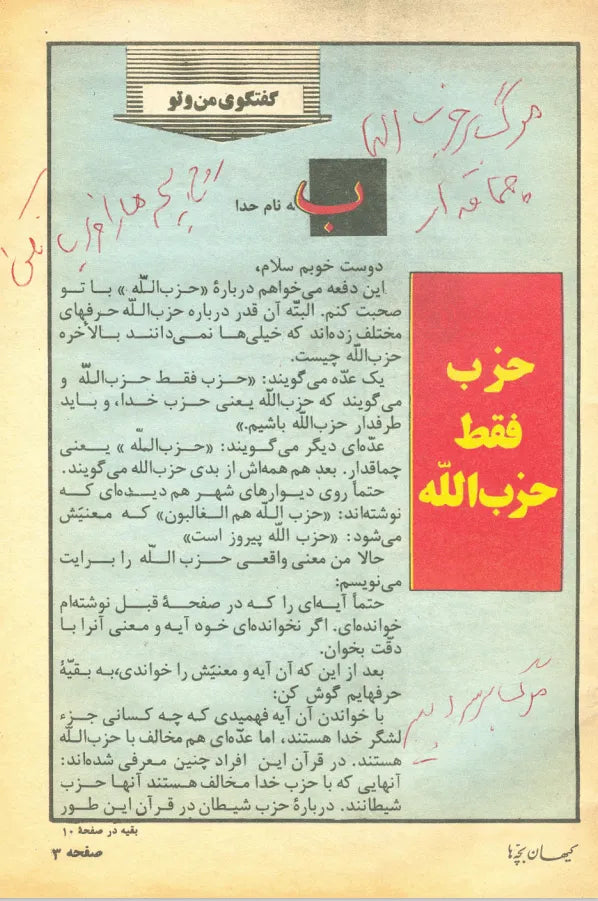 گفتگوی من و تو
مرگ بر حزب اللهی
چماقدار
به نام خدا
دوست خوبم سلام،
این دفعه می‌خواهم دربارهٔ «حزب‌اللّه» با تو
صحبت کنم. البتّه آن قدر درباره حزب‌اللّه حرفهای
مختلف زده‌اند که خیلی‌ها نمی‌دانند بالاخره
حزب‌اللّه چیست.
یک عدّه می‌گویند: «حزب فقط حزب‌اللّه و
می‌گویند که حزب‌اللّه یعنی حزب خدا، و باید
طرفدار حزب‌اللّه باشیم.»
عدّه‌ای دیگر می‌گویند: «حزب‌اللّه» یعنی
چماقدار. بعد هم همه‌اش از بدی حزب‌الله می‌گویند.
حتماً روی دیوارهای شهر هم دیده‌ای که
نوشته‌اند: «حزب اللّه هم الغالبون» که معنیّش
می‌شود: «حزب اللّه پیروز است»
حالا من معنی واقعی حزب اللّه را برایت
می‌نویسم:
حتماً آیه‌ای را که در صفحهٔ قبل نوشته‌ام
خوانده‌ای. اگر نخوانده‌ای خود آیه و معنی آنرا با
دقّت بخوان.
بعد از این که آن آیه و معنیّش را خواندی، به بقیّهٔ
حرفهایم گوش کن:
با خواندن آن آیه فهمیدی که چه کسانی جزء
لشگر خدا هستند، اما عدّه‌ای هم مخالف با حزب‌اللّه
هستند. در قرآن این افراد چنین معرفی شده‌اند:
آنهایی که با حزب خدا مخالف هستند آنها حزب
شیطانند. دربارهٔ حزب شیطان در قرآن این طور
حزب
فقط
حزب‌اللّه
بقیه در صفحهٔ ۱۰
کیهان بچّه‌ها
صفحه ۳